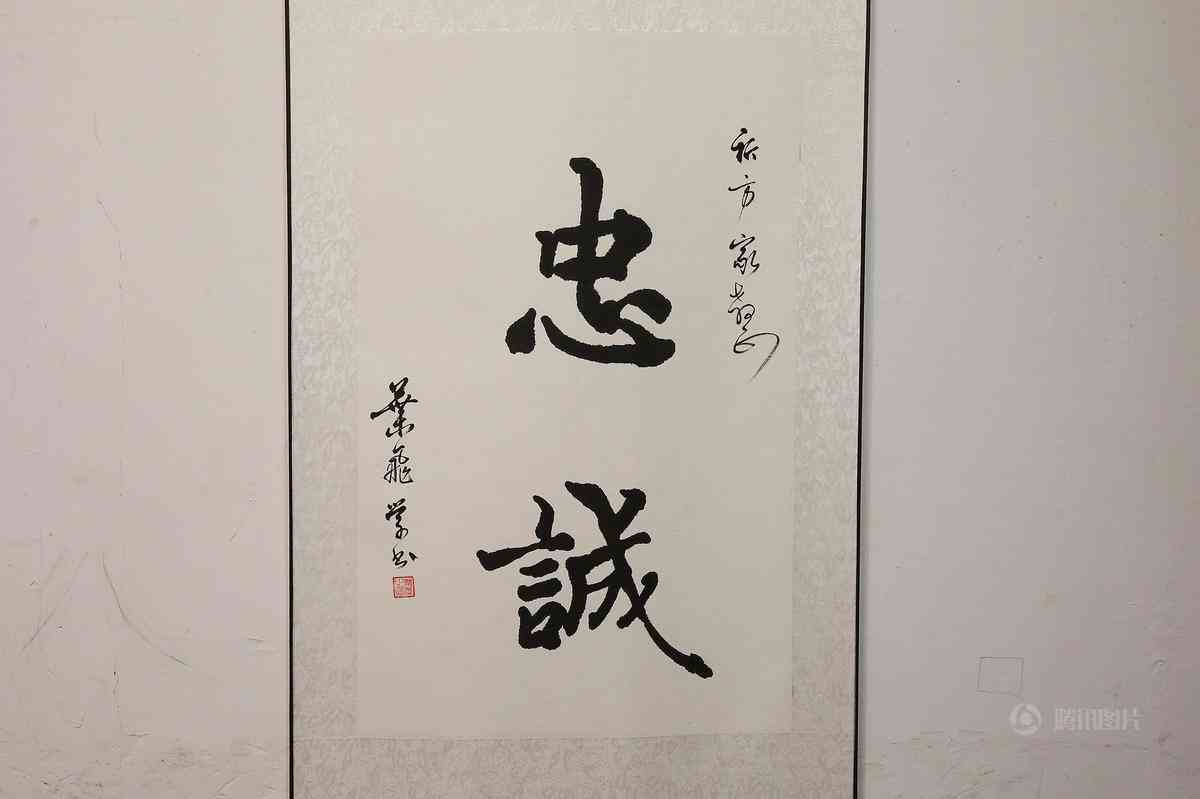 祈方家教正
忠誠
葉飛学书
腾讯图片